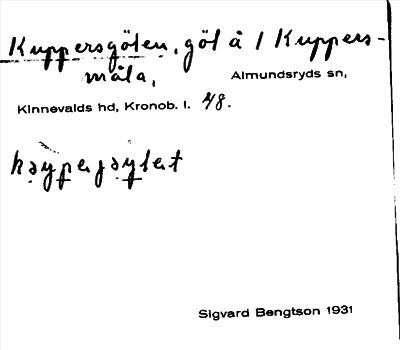 Kuppersgölen, göl å 1 Kuppers-
måla,
Almundsryds sn,
Kinnevalds hd, Kronob. l. 48.
Sigvard Bengtson 1931